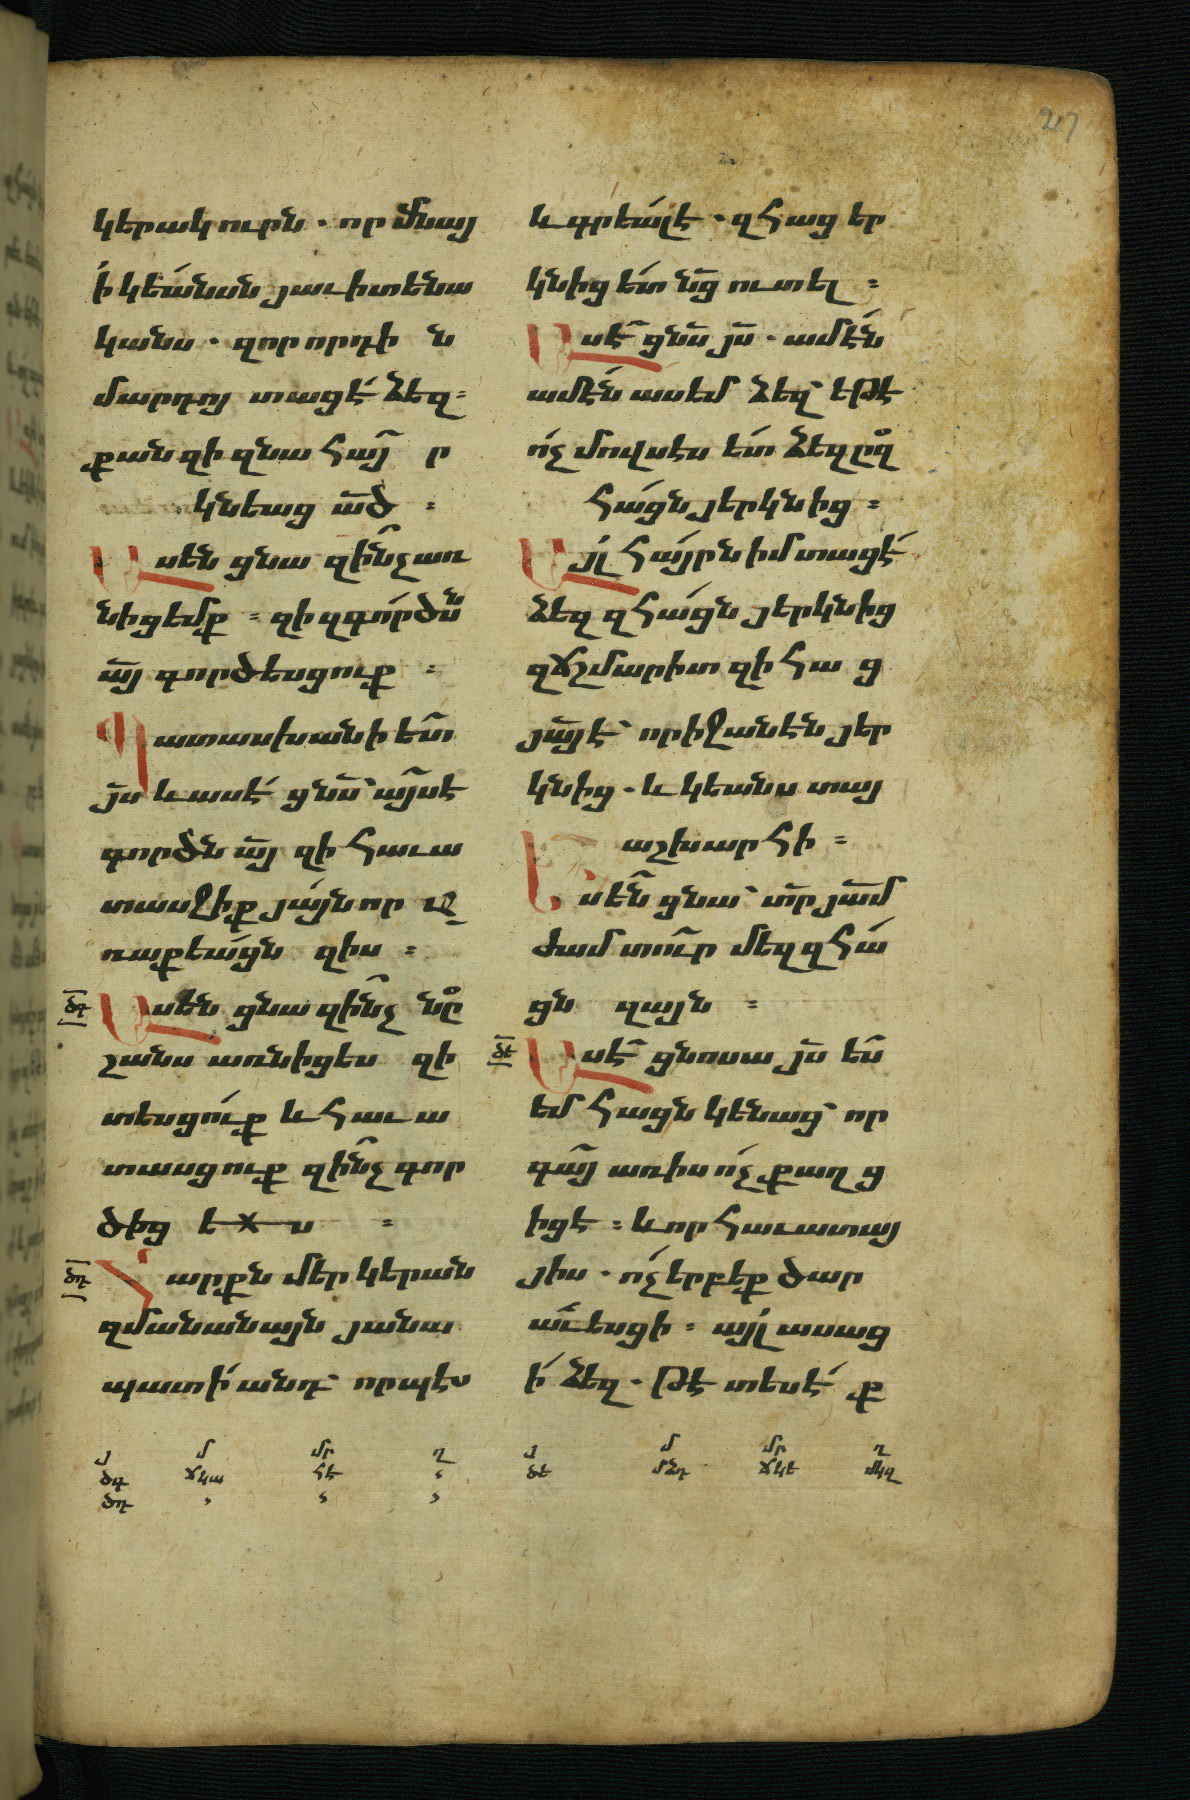 217
կերակուրն. որ մնայ
ի կեանսն յաւիտենա
կանս. զոր որդի ն
մարդոյ տացէ ձեզ։
քանզի զնա հայ ր
կնեաց ած ։
Ասեն ցնա զինչ առ
նիցեմք ։ զի զգործն
այ գործեսցուք ։
Պատասխանի ետ
յս և ասէ ցնս՝ այսէ
գործն այ զի հաւա
տասջիք յայն որ
առաքեացն զիս ։
ծգ
Ասեն ցնա զինչ նը
շանս առնիցես զի
տեսցուք և հաւա
տասցուք զինչ գոր
ծից ես ։
ծդ
Հարքն մեր կերան
զմանանայն յանա
պատի անդ՝ որպէս
և գրեալ է. զհաց եր
կնից ետ նց ուտել ։
Ասէ ցնս յս. ամէն
ամէն ասեմ ձեզ՝ եթէ
ոչ մովսէս ետ ձեզ ըզ
հացն յերկնից ։
Այլ հայրն իմ տացէ
ձեզ զհացն յերկնից
զճշմարիտ զի հա ց
յայ է՝ որ իջանէն յեր
կնից. և կեանս տայ
աշխարհի ։
Ասեն ցնա՝ տր յամ
ժամ տուր մեզ զհա
ցն զայն ։
ծե
Ասէ ցնոսա յս ես
եմ հացն կենաց՝ որ
գայ առ իս ոչ քաղ ց
իցէ ։ և որ հաւատայ
յիս. ոչ երբեք ծար
աւեսցի ։ այլ ասաց
ի ձեզ. թէ տեսէ ք
յ մ մր ղ
ծգ ճկա հէ
ծդ
յ մ մր ղ
ծե մնդ ճկե մկզ